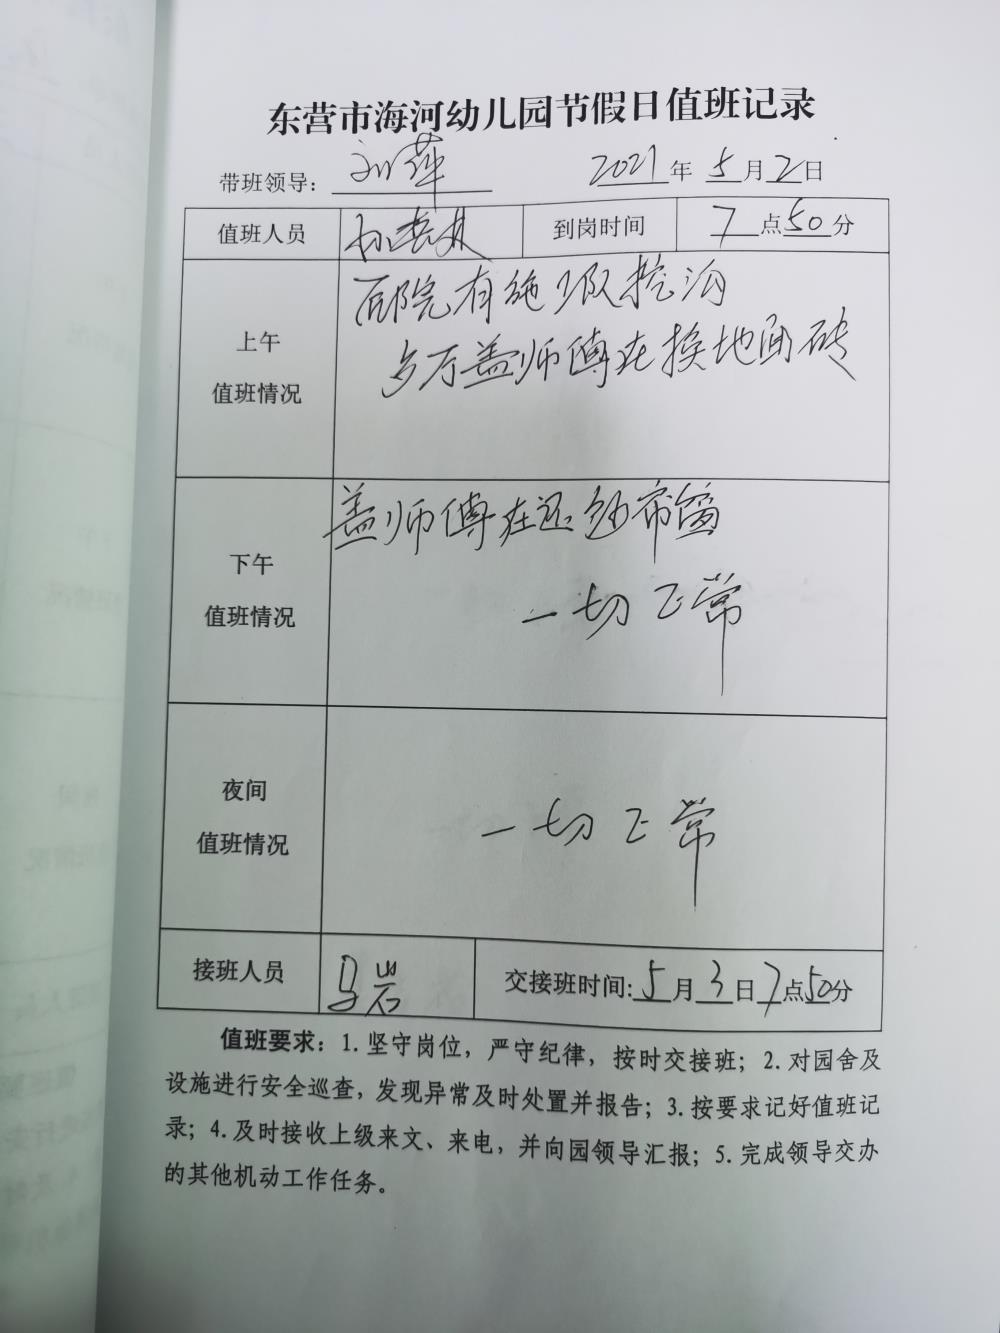 东营市海河幼儿园节假日值班记录
带班领导：刘萍 2021年5月2日
值班人员 到岗时间 7点50分
上午
值班情况
西院有施工队挖沟
多万盖师傅在换地面砖
下午
值班情况
盖师傅在还纱窗
一切正常
夜间
值班情况
一切正常
接班人员 马岩 交接班时间:5月3日7点50分
值班要求：1.坚守岗位，严守纪律，按时交接班；2.对园舍及
设施进行安全巡查，发现异常及时处置并报告；3.按要求记好值班记
录；4.及时接收上级来文、来电，并向园领导汇报；5.完成领导交办
的其他机动工作任务。